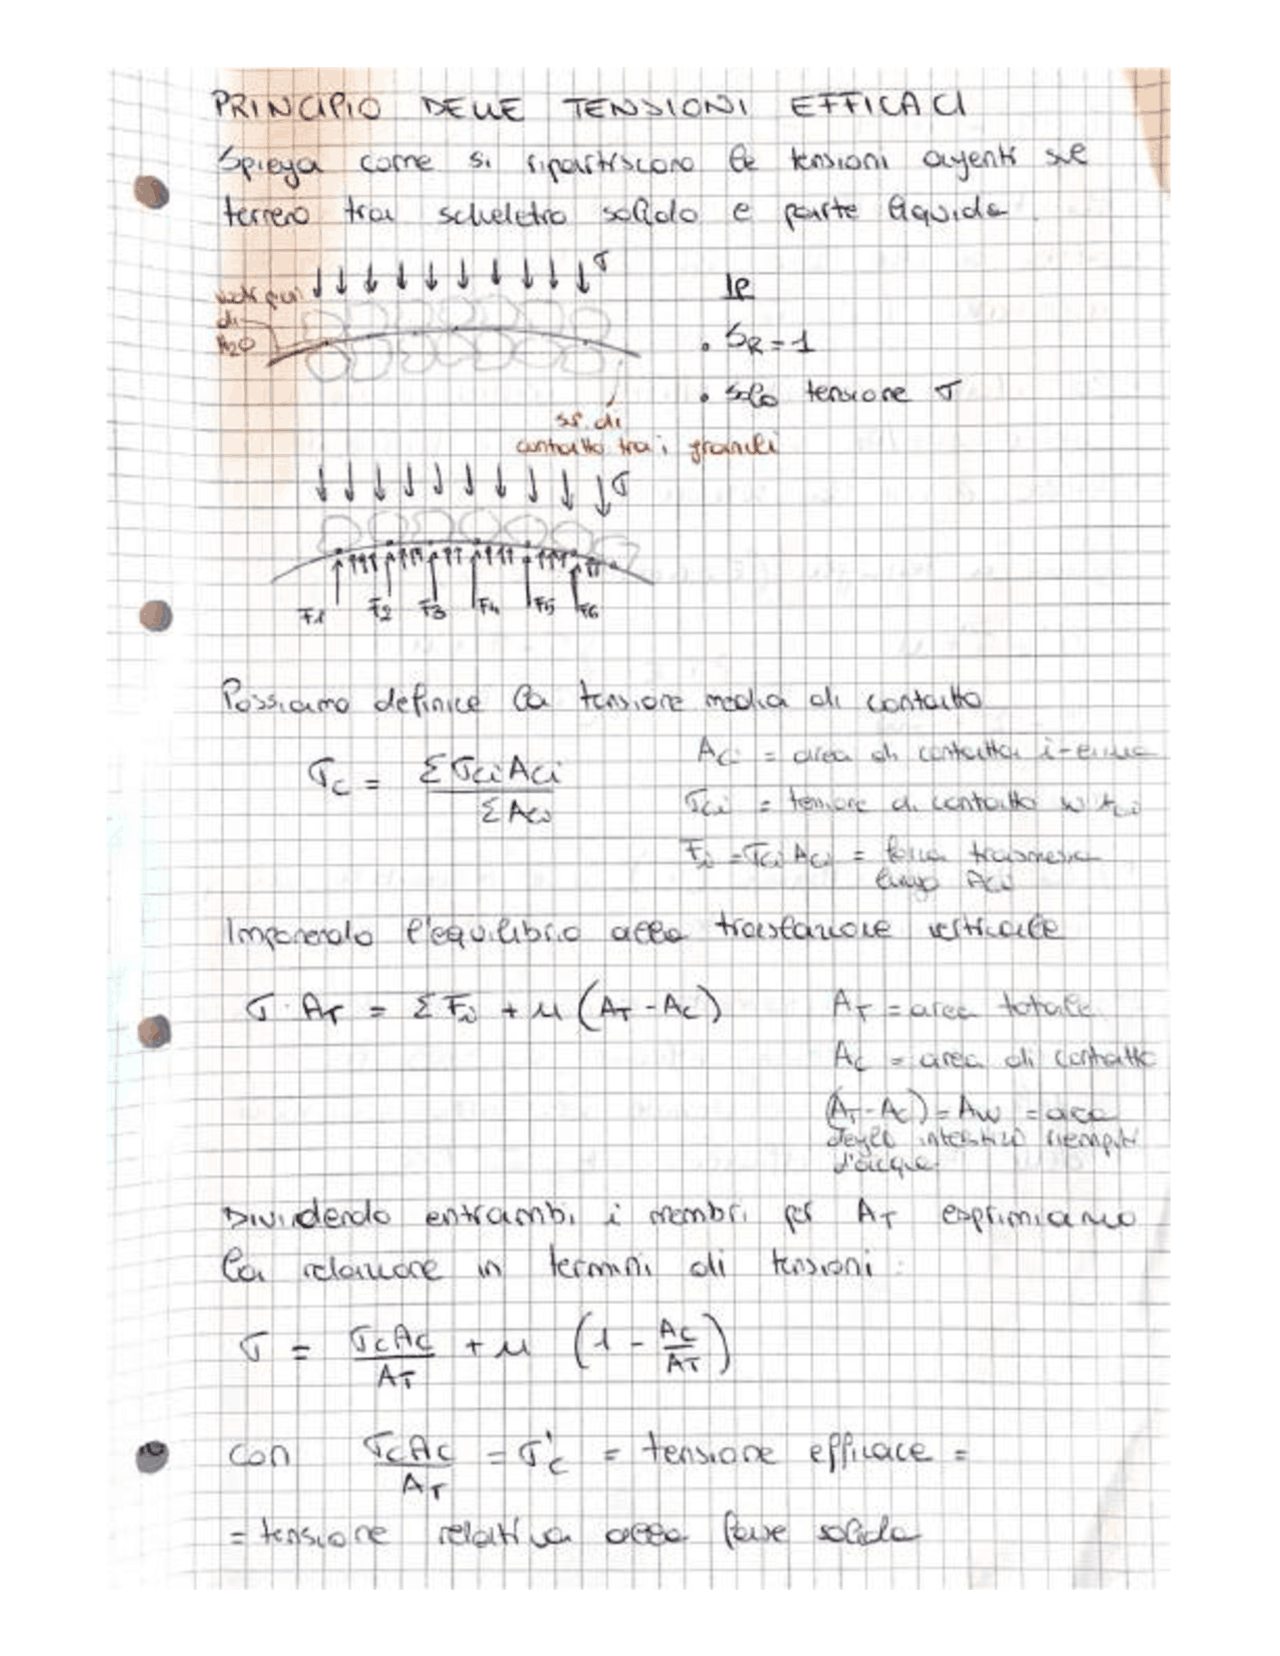 PRINCIPIO DELLE TENSIONI EFFICACI
Spiega come si ripartiscono le tensioni agenti sul
terreno tra scheletro solido e parte liquida.
σ
vuoti pieni
di
H2O
Ip
• SR = 1
• solo tensione σ
sup. di
contatto tra i granuli
σ
F1 F2 F3 F4 F5 F6
Possiamo definire la tensione media di contatto
σc = ΣσciAci / ΣAci
Aci = area di contatto i-esima
σci = tensione di contatto su Aci
Fi = σci Aci = forza trasmessa
lungo Aci
Imponendo l'equilibrio alla traslazione verticale
σ · AT = ΣFi + u (AT - AC)
AT = area totale
AC = area di contatto
(AT - AC) = AW = area
degli interstizi riempiti
d'acqua.
Dividendo entrambi i membri per AT esprimiamo
la relazione in termini di tensioni:
σ = σcAc / AT + u (1 - AC / AT)
con σcAc / AT = σ'c = tensione efficace =
= tensione relativa alla fase solida